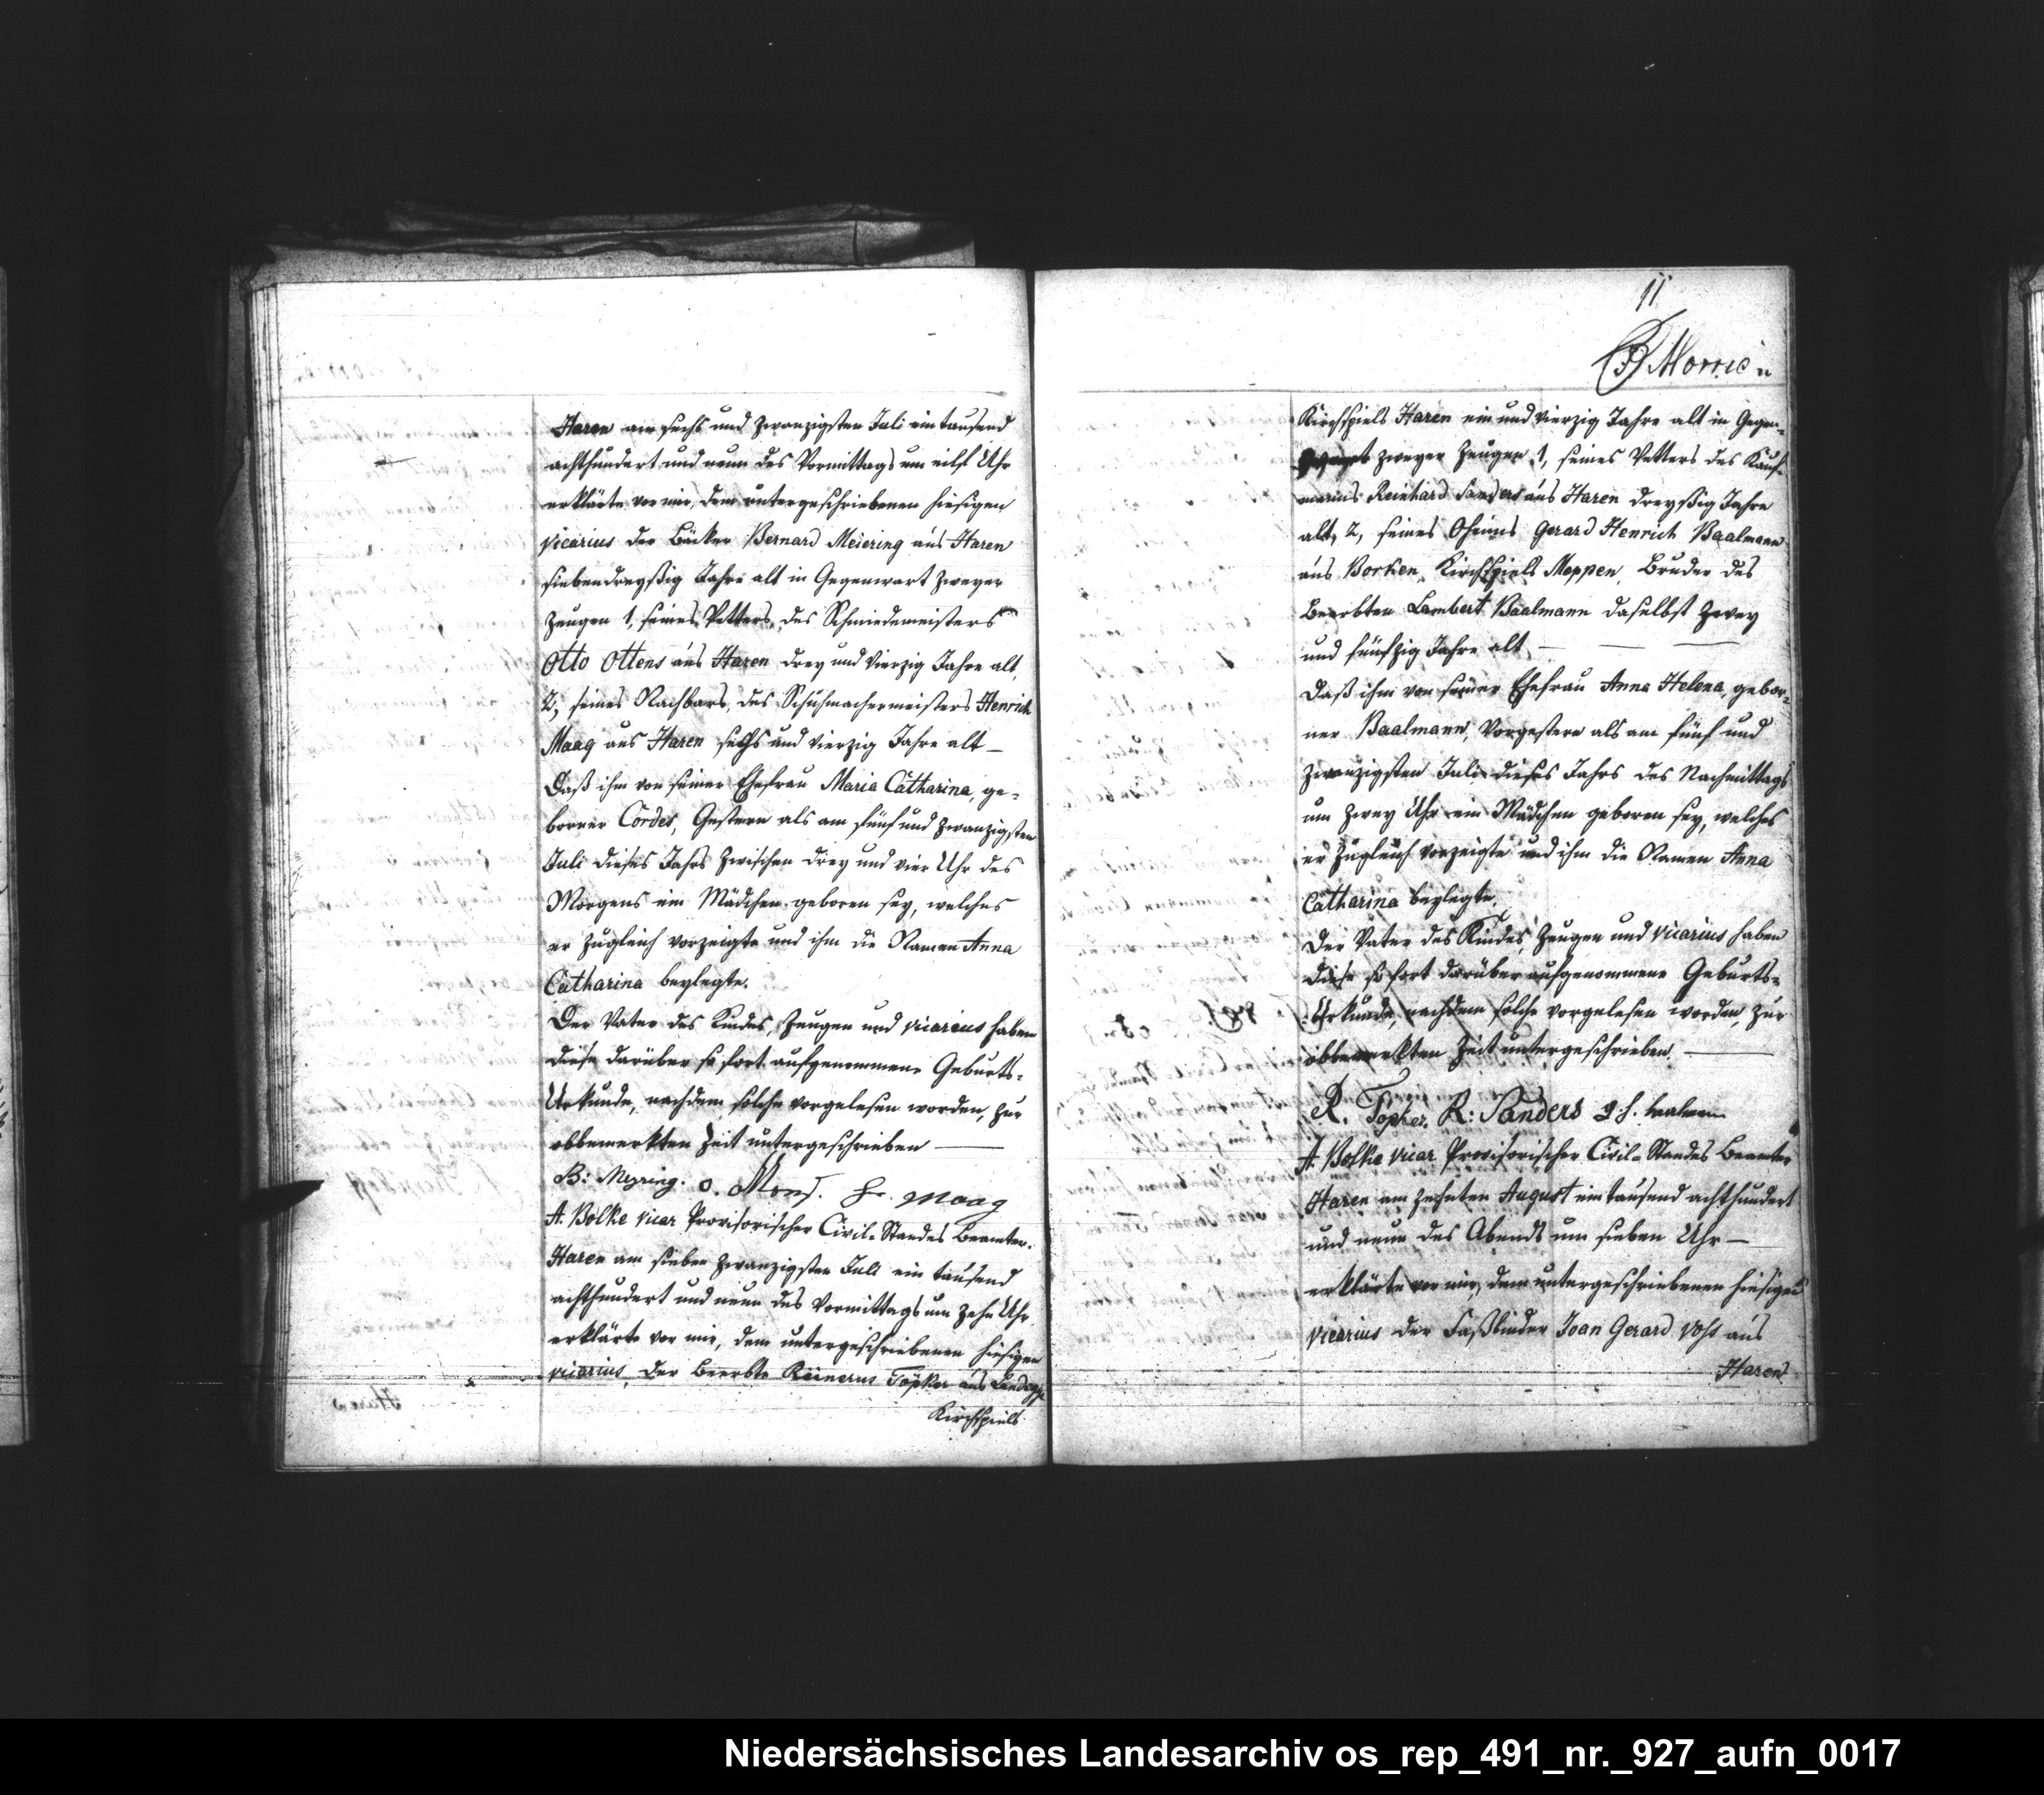 Haren am sechs und zwanzigsten Juli ein tausend
achthundert und neun des Vormittags um eilf Uhr
erklärte vor mir, dem untergeschriebenen hiesigen
vicarius der Bäcker Bernard Meiering aus Haren
siebendreyßig Jahre alt in Gegenwart zweyer
Zeugen 1, seines Vetters, des Schmiedemeisters
Otto Ottens aus Haren drey und vierzig Jahre alt,
2, seines Nachbars, des Schuhmachermeisters Henrich
Maag aus Haren sechs und vierzig Jahre alt –
Daß ihm von seiner Ehefrau Maria Catharina, ge-
borner Cordes, Gestern als am fünf und zwanzigsten
Juli dieses Jahrs zwischen drey und vier Uhr des
Morgens ein Mädchen geboren sey, welches
er zugleich vorzeigte und ihm die Namen Anna
Catharina beylegte.
Der Vater des Kindes, Zeugen und vicarius haben
diese darüber so fort aufgenommene Geburts-
Urkunde, nachdem solche vorgelesen worden, zur
obbemerkten Zeit untergeschrieben —
B: Meyring. O. Hr. Maag
A. Bolke vicar Provisorischer Civil-Standes Beamter.
Haren am sieben zwanzigsten Juli ein tausend
achthundert und neun des Vormittags um zehn Uhr
erklärte vor mir, dem untergeschriebenen hiesigen
vicarius, der Beerbte Reinerus Töpker aus Landegge
Kirchspiels
11
Kirchspiels Haren ein und vierzig Jahre alt in Gegen-
wart zweyer Zeugen 1, seines Vetters des Kauf-
manns Reinhard Sanders aus Haren dreyßig Jahre
alt, 2, seines Oheims Gerard Henrich Baalmann
aus Borken, Kirchspiels Meppen, Bruder des
Beerbten Lambert Baalmann daselbst zwey
und fünfzig Jahre alt — — —
Daß ihm von seiner Ehefrau Anna Helena, gebor-
ner Baalmann, Vorgestern als am fünf und
zwanzigsten Juli dieses Jahrs des Nachmittags
um zwey Uhr ein Mädchen geboren sey, welches
er zugleich vorzeigte und ihm die Namen Anna
Catharina beylegte.
Der Vater des Kindes, Zeugen und vicarius haben
diese so fort darüber aufgenommene Geburts-
Urkunde, nachdem solche vorgelesen worden, zur
obbemerkten Zeit untergeschrieben. —
R. Töpker. R: Sanders G. H. Baalmann
A. Bolke vicar Provisorischer Civil-Standes Beamter
Haren am zehnten August ein tausend achthundert
und neun des Abends um sieben Uhr —
erklärte vor mir, dem untergeschriebenen hiesigen
vicarius der Faßbinder Joan Gerard Vohs aus
Haren
Niedersächsisches Landesarchiv os_rep_491_nr._927_aufn_0017